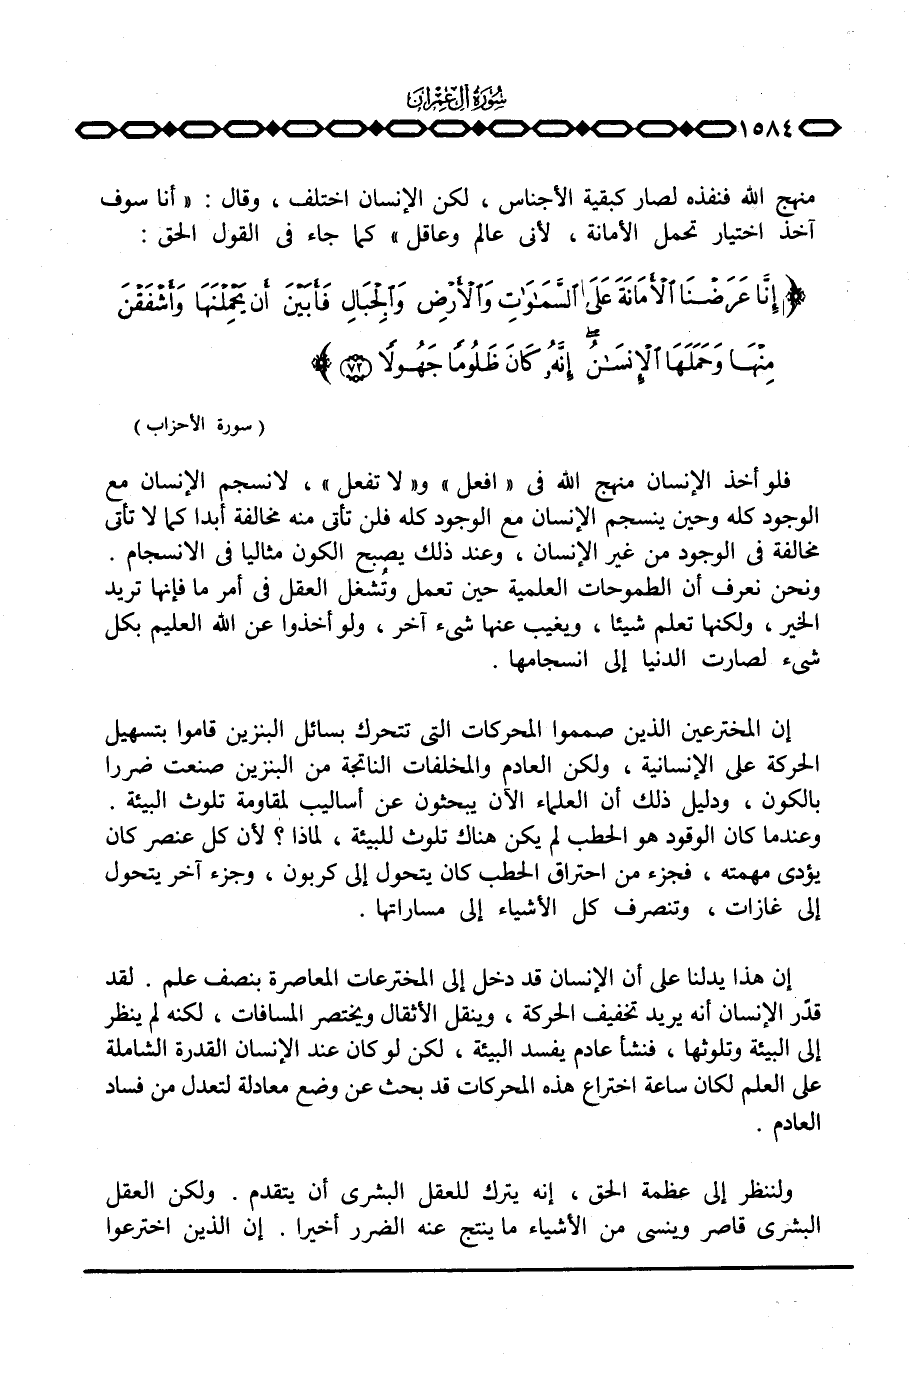 سورة آل عمران
١٥٨٤
منهج الله فنفذه لصار كبقية الأجناس ، لكن الإنسان اختلف ، وقال : « أنا سوف
آخذ اختيار تحمل الأمانة ، لأنى عالم وعاقل » كما جاء فى القول الحق :
﴿ إِنَّا عَرَضْنَا ٱلْأَمَانَةَ عَلَى ٱلسَّمَٰوَٰتِ وَٱلْأَرْضِ وَٱلْجِبَالِ فَأَبَيْنَ أَن يَحْمِلْنَهَا وَأَشْفَقْنَ
مِنْهَا وَحَمَلَهَا ٱلْإِنسَٰنُ ۖ إِنَّهُۥ كَانَ ظَلُومًا جَهُولًا ٧٢ ﴾
( سورة الأحزاب )
فلو أخذ الإنسان منهج الله فى « افعل » و« لا تفعل » ، لانسجم الإنسان مع
الوجود كله وحين ينسجم الإنسان مع الوجود كله فلن تأتى منه مخالفة أبدا كما لا تأتى
مخالفة فى الوجود من غير الإنسان ، وعند ذلك يصبح الكون مثاليا فى الانسجام .
ونحن نعرف أن الطموحات العلمية حين تعمل وتُشغل العقل فى أمر ما فإنها تريد
الخير ، ولكنها تعلم شيئا ، ويغيب عنها شىء آخر ، ولو أخذوا عن الله العليم بكل
شىء لصارت الدنيا إلى انسجامها .
إن المخترعين الذين صمموا المحركات التى تتحرك بسائل البنزين قاموا بتسهيل
الحركة على الإنسانية ، ولكن العادم والمخلفات الناتجة من البنزين صنعت ضررا
بالكون ، ودليل ذلك أن العلماء الآن يبحثون عن أساليب لمقاومة تلوث البيئة .
وعندما كان الوقود هو الحطب لم يكن هناك تلوث للبيئة ، لماذا ؟ لأن كل عنصر كان
يؤدى مهمته ، فجزء من احتراق الحطب كان يتحول إلى كربون ، وجزء آخر يتحول
إلى غازات ، وتنصرف كل الأشياء إلى مساراتها .
إن هذا يدلنا على أن الإنسان قد دخل إلى المخترعات المعاصرة بنصف علم . لقد
قدّر الإنسان أنه يريد تخفيف الحركة ، وينقل الأثقال ويختصر المسافات ، لكنه لم ينظر
إلى البيئة وتلوثها ، فنشأ عادم يفسد البيئة ، لكن لو كان عند الإنسان القدرة الشاملة
على العلم لكان ساعة اختراع هذه المحركات قد بحث عن وضع معادلة لتعدل من فساد
العادم .
ولننظر إلى عظمة الحق ، إنه يترك للعقل البشرى أن يتقدم . ولكن العقل
البشرى قاصر وينسى من الأشياء ما ينتج عنه الضرر أخيرا . إن الذين اخترعوا